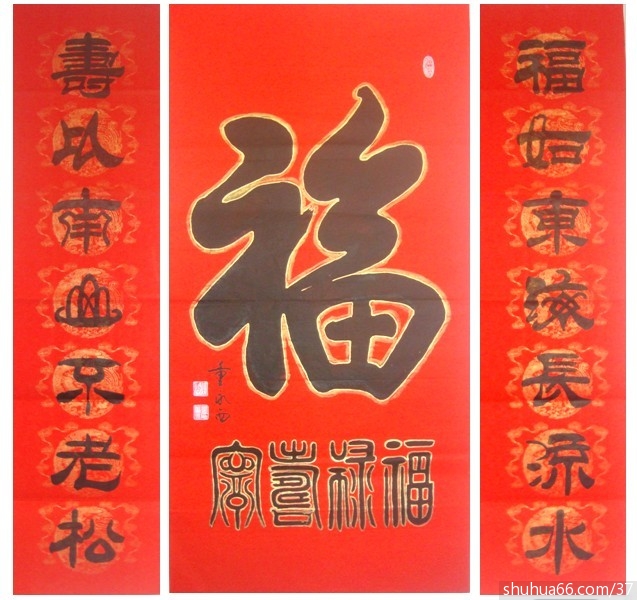 福如東海長流水
福
福禄
壽以南山不老松
shuhua66.com/37